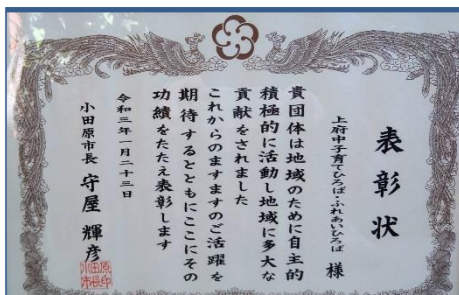 表彰状
上府中子育てひろば・ふれあいひろば 様
貴団体は地域のために自主的
積極的に活動し地域に多大な
貢献をされました
これからのますますのご活躍を
期待するとともにここにその
功績をたたえ表彰します
令和三年一月二十三日
小田原市長 守屋輝彦
小田原市長印